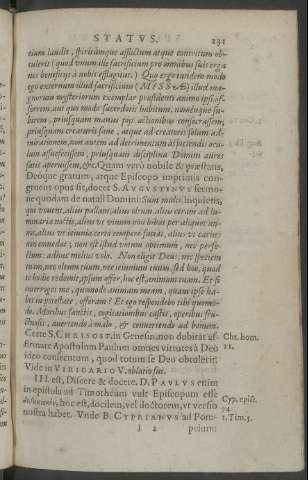 STATVS. 231
tium laudis, spiritúmque afflictum atque contritum ob-
tuleris (quod vnum ille sacrificium pro omnibus suis erga
nos beneficijs à nobis efflagitat.) Quo ergo tandem modo
ego externum illud sacrificium (MISSÆ) illud ma-
gnorum mysteriorum exemplar præfidentis animo ipsi of-
ferrem, aut quo modo sacerdotis habitum, noménque su-
birem, priusquam manus pijs actionibus consecrassem,
priusquam creaturis sanè, atque ad creatoris solùm ad-
mirationem, non autem ad detrimentum aspiciendis ocu-
los assuefecissem, priusquam disciplina Domini aures
satis aperuissem, &c. Quàm verò nobile & præstans,
Deóque gratum, atque Episcopo imprimis con-
gruens opus sit, docet S. AVGVSTINVS sermo-
ne quodam de natali Domini: Sunt multi, inquiens,
qui vouent, alius pallam, alius oleum, alius ceram ad lu-
minaria noctis, alius vt vinum non bibat per aliquot an-
nos, alius vt ieiunia certo tempore faciat, alius vt carnes
non comedat; non est istud votum optimum, nec perfe-
ctum: adhuc melius volo. Non eligit Deus, nec speciem
tuam, nec oleum tuum, nec ieiunium tuum, sed hoc, quod
te hodie redemit, ipsum offer, hoc est, animam tuam. Et si
interroges me, quomodo animam meam, quam ipse ha-
bet in potestate, offeram? Et ego respondebo tibi quomo-
do. Moribus sanctis, cogitationibus castis, operibus fru-
ctuosis, auertendo à malo, & conuertendo ad bonum.
Certè S. CHRISOST. in Genesin, non dubitat af- Chr. hom.
firmare Apostolum Paulum omnes virtutes à Deo 11.
ideo consecutum, quod totum se Deo obtulerit.
Vide in VIRIDARIO V. oblatio sui.
III. est, Discere & docere. D. PAVLVS enim
in epistola ad Timotheum vult Episcopum esse
hoc est, docilem, vel doctorem, vt versio Cyp. epist. 74.
nostra habet. Vnde B. CYPRIANVS ad Pom- 1. Tim. 3.
peium: